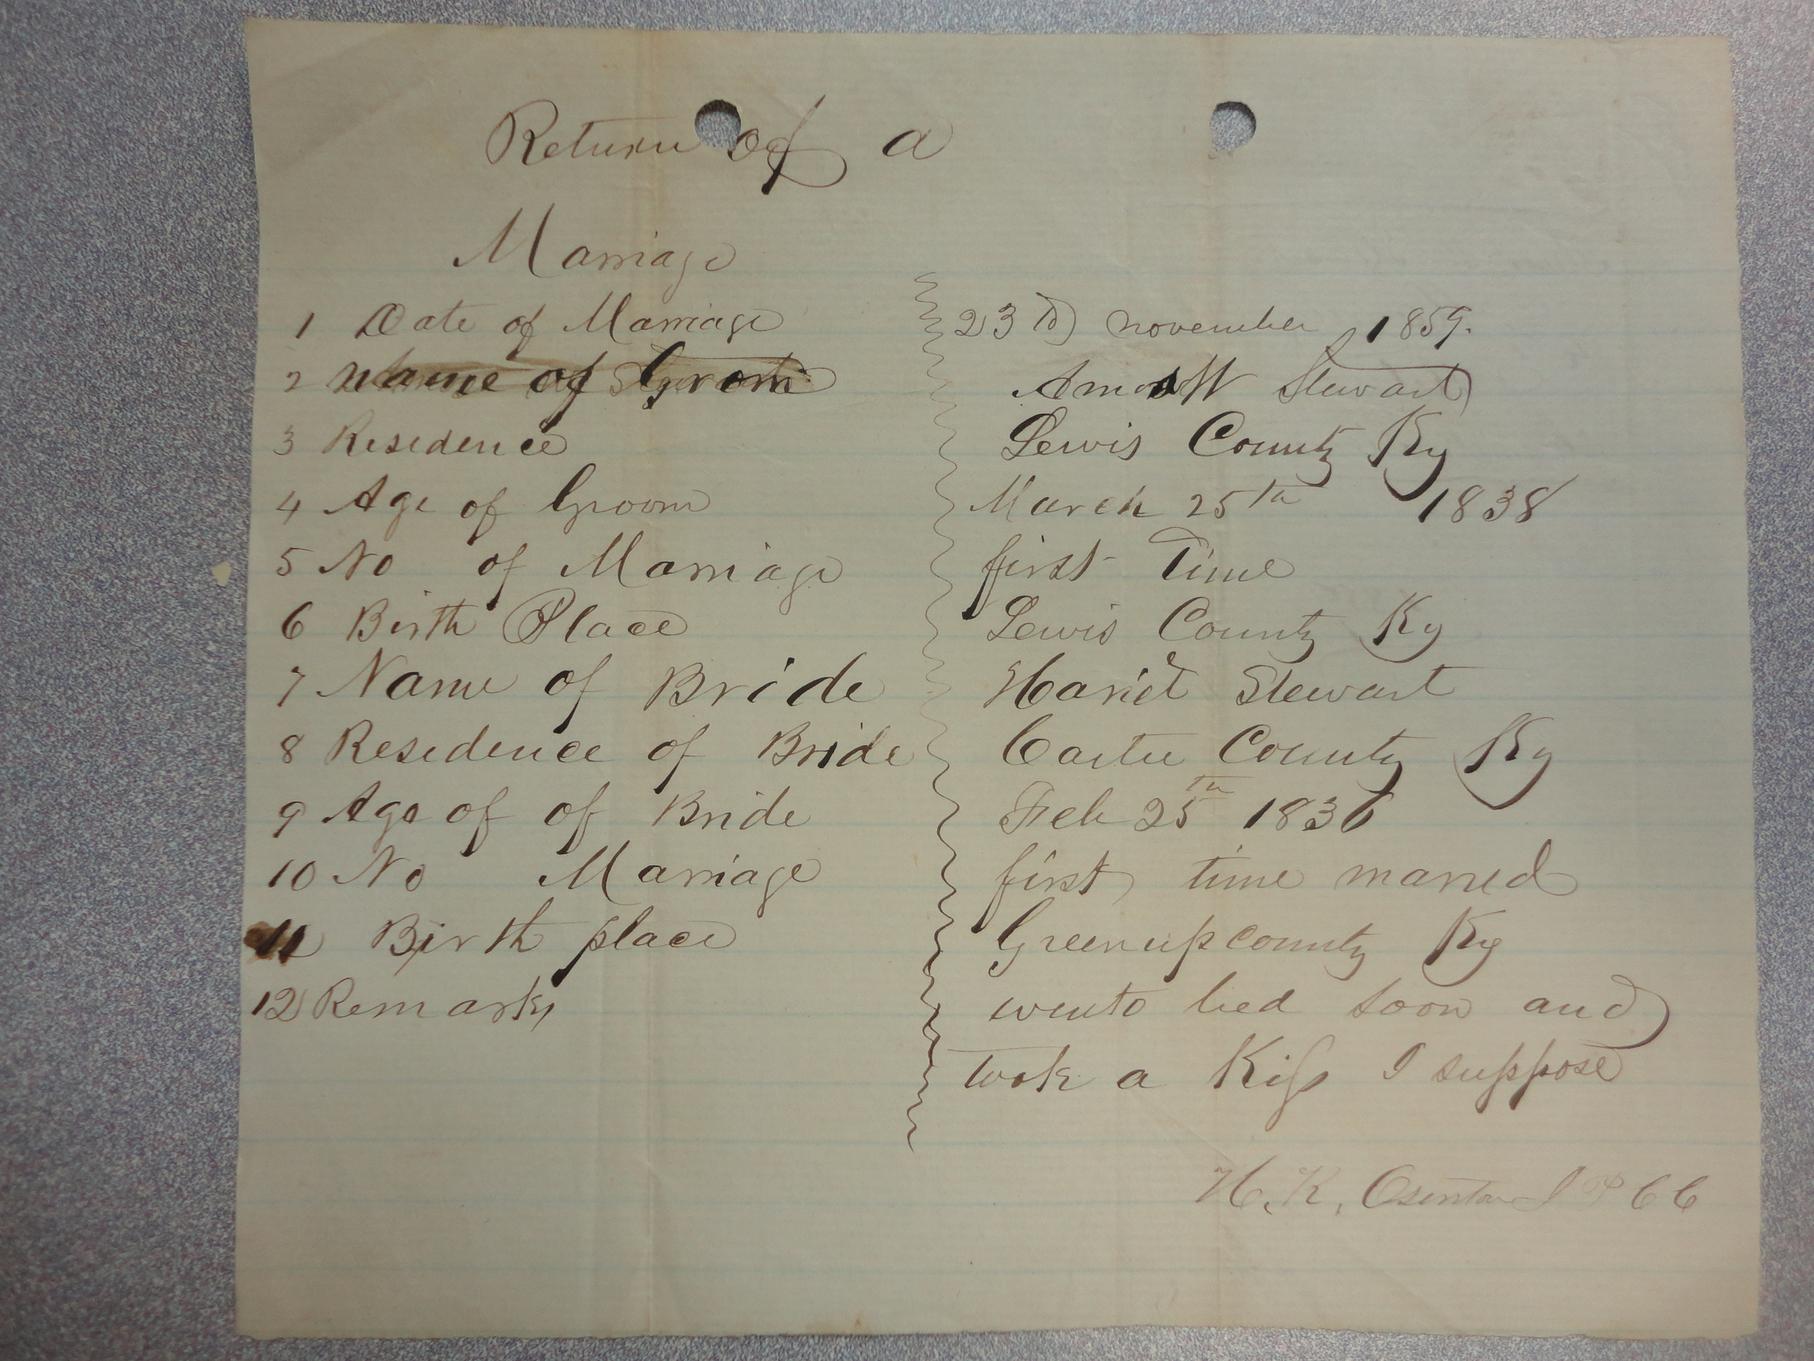 Return of a
Marriage
1 Date of Marriage 23th november 1859.
2 Name of Groom Stewart
3 Residence Lewis County Ky
4 Age of Groom March 25th 1838
5 No of Marriage first Time
6 Birth Place Lewis County Ky
7 Name of Bride Hariet Stewart
8 Residence of Bride Carter County Ky
9 Age of of Bride Feb 25th 1836
10 No Marriage first time maried
11 Birth place Greenup county Ky
12 Remarks wento bed soon and
took a Kiss I suppose
H. K. Osenton J P C C